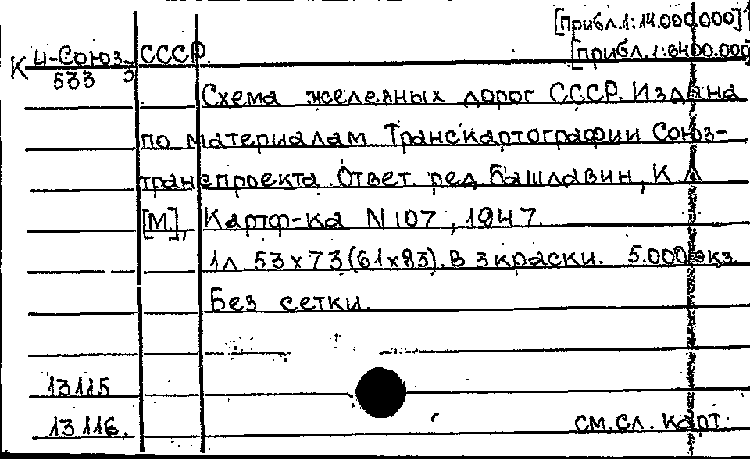 [Прибл. 1:14.000.000]
К Ц-Союз-3 СССР [прибл. 1:8400.000]
533
Схема железных дорог СССР. Издана
по материалам Транскартографии Союз-
транспроекта. Ответ. ред. Башлавин, К А
[М.], Картф-ка N 107, 1947.
1л 53х73(61х83). В 3 краски. 5.000 экз.
Без сетки.
13115
13116. см. сл. карт.